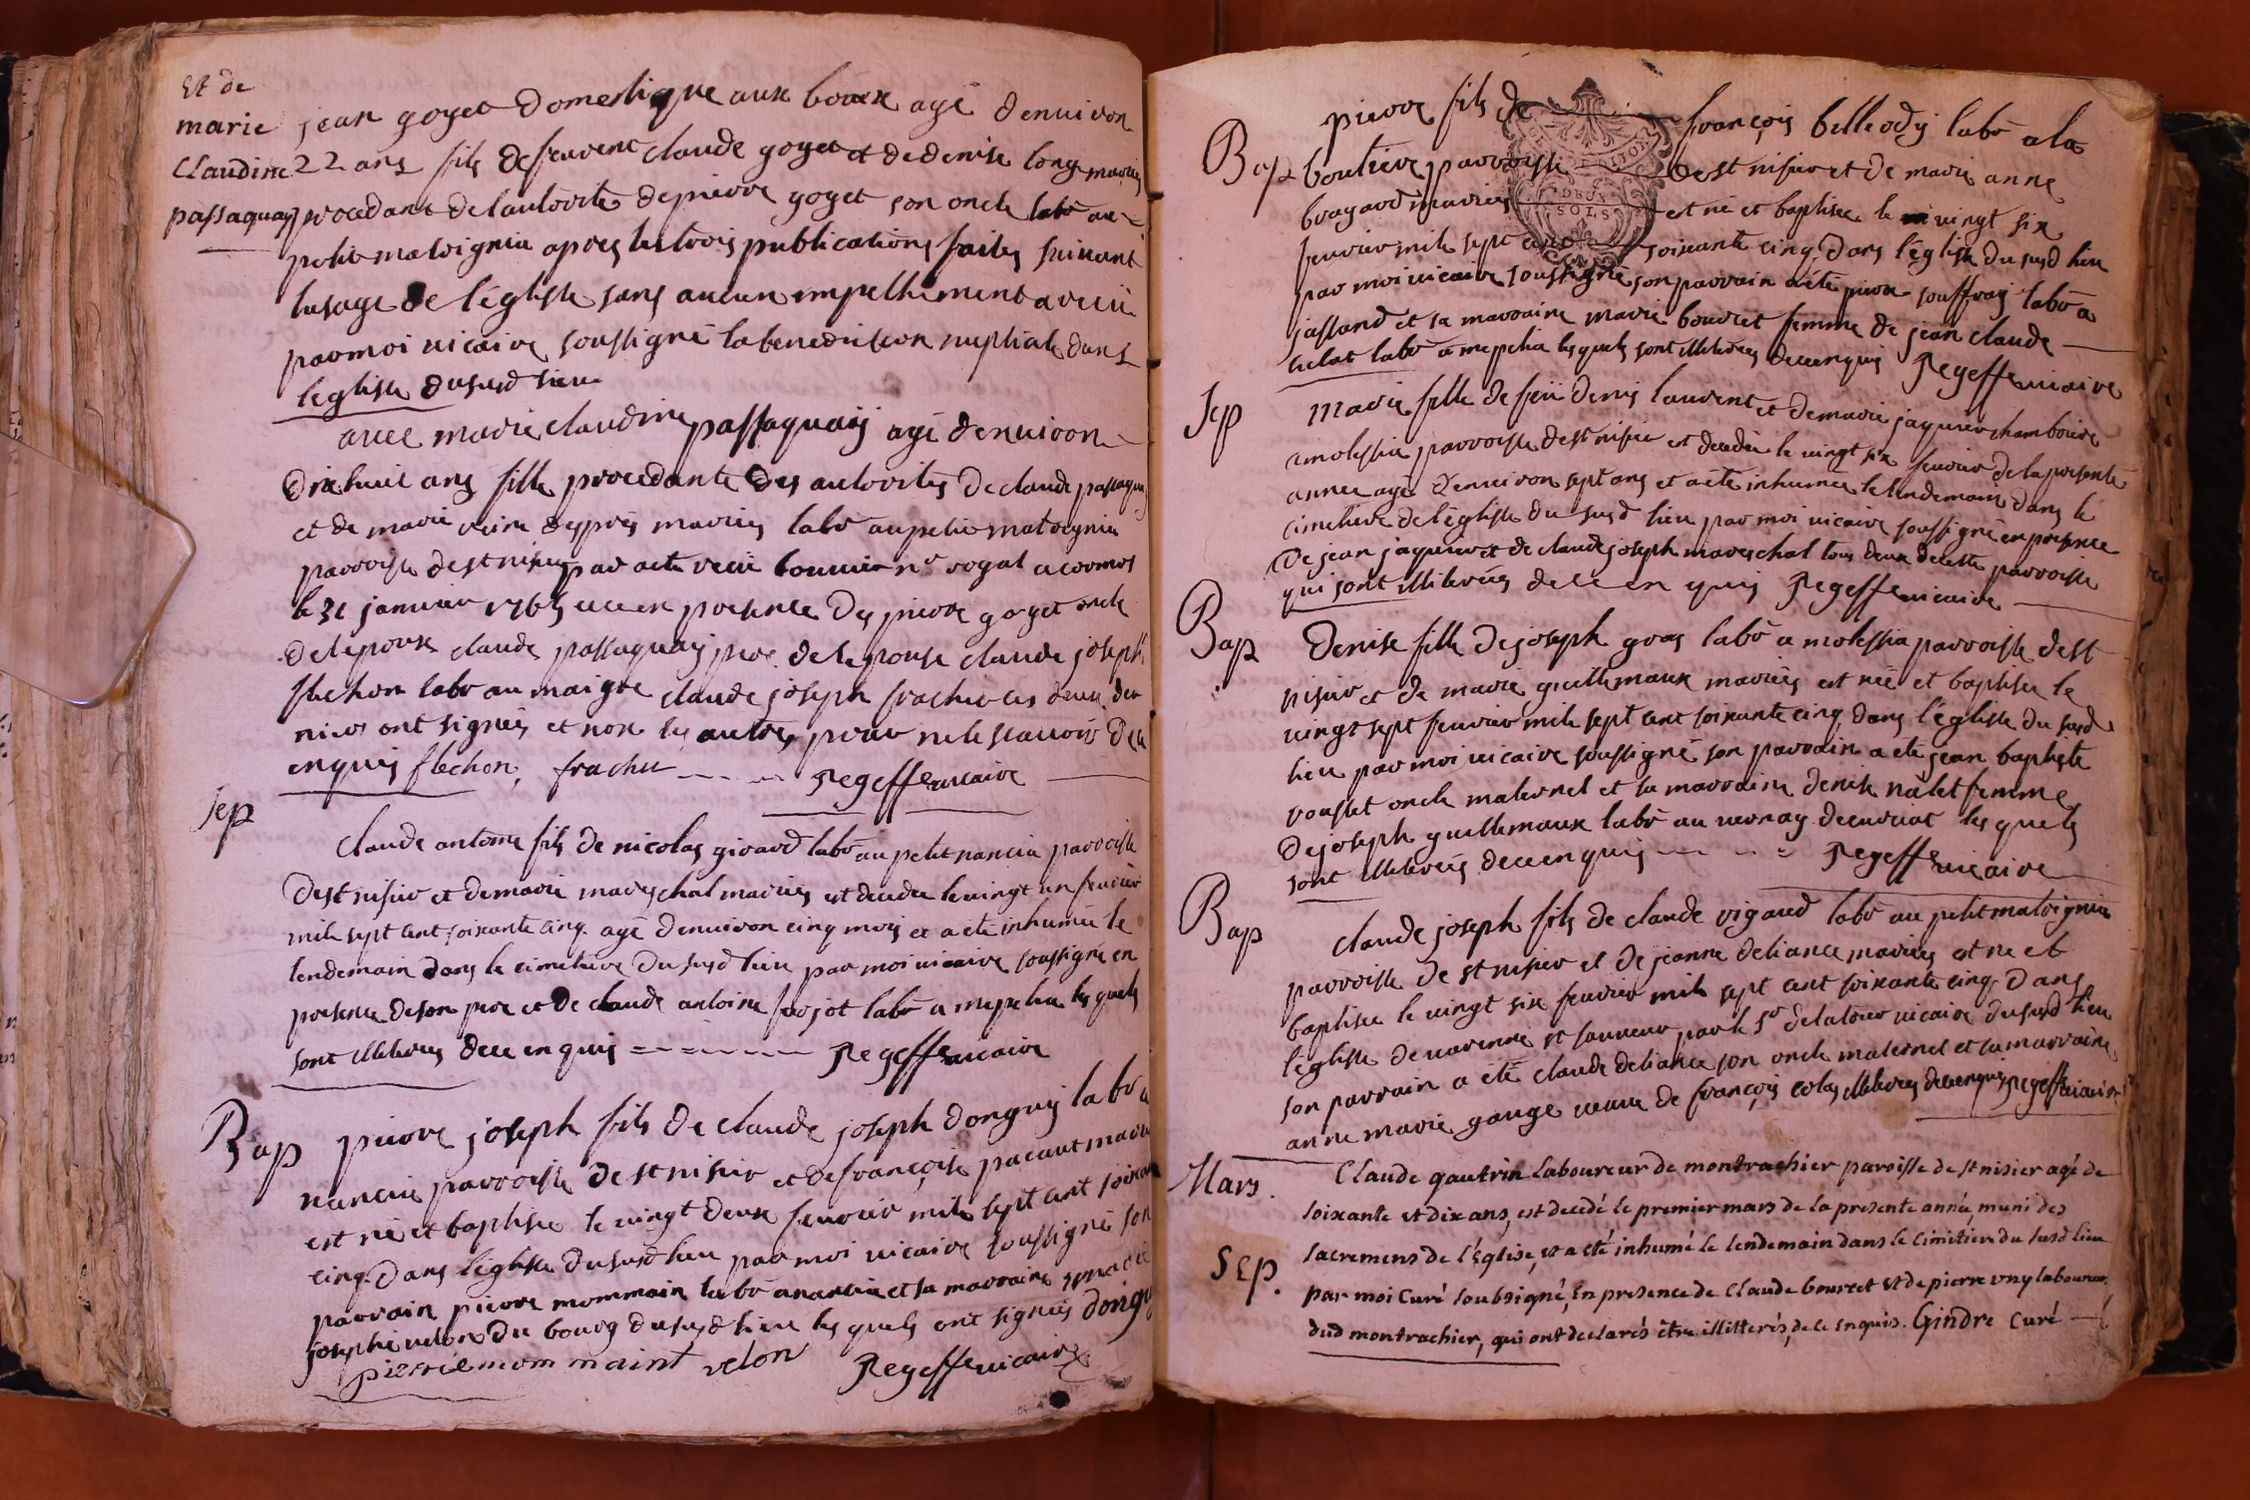 Et de
marie
Claudine
passaquay
jean goyet domestique aux bouex agé denuiron
22 ans fils defeuvent claude goyet et dedenise long mariés
procedant delautorité depierre goyet son oncle labr au
petit matoignia apres lestrois publications faites suivant
lusage de l'église sans aucun empeschement a receü
parmoi uicaire soussigné labenediction nuptiale dans
leglise dususd lieu
auec marie claudine passaquay agé denuiron
dixhuit ans fille procedante des autorités declaude passaquay
et de marie mariés labr aupetit matoignia
parroisse destnisier par acte receü bouuier nre royal acormos
le 31 januier 1765 ce en presence de pierre goyet oncle
delepoux claude passaquay pere delepouse claude joseph
flechon labr au maigre claude joseph frachet ces deux der
niers ont signés et non les autres pour nele scauoir dece
enquis flechon, frachet Regeffe uicaire
Sep
claude antoine fils de nicolas girard labr au petit nancia parroisse
destnisier et demarie mareschal mariés est decedee levingt un feurier
mile sept cent soixante cinq agé denuiron cinq mois et a eté inhumée le
lendemain dans le cimetiere dususd lieu par moi uicaire soussigné en
presence deson pere et de claude antoine ferjot labr a mepelia les quels
sont illiterés dece enquis Regeffe uicaire
Bap
pierre joseph fils de claude joseph donguy labr a
nancia parroisse destnisier et defrançoise pacaut mariés
est né et baptisé le uingt deux feurier mile sept cent soixan
cinq dans leglise dususd lieu par moi uicaire soussigné son
parrain pierre mommain labr anancia et sa marraine
josephe uelon du bourg dususd lieu les quels ont signés dongu
pierre mommaint velon Regeffe uicaire
Bap
pierre fils de françois belleody labr a la
boutiere parroisse de st nisier et de marie anne
brayard mariés est né et baptisée le uingt six
feurier mile sept cent soixante cinq dans l'église du susd lieu
par moi uicaire soussigné son parrain a eté pierre souffray labr a
jassand et sa marraine marie bouret femme de jean claude
labr a mepelia les quels sont illiterés dece enquis Regeffe uicaire
Sep
marie fille de feü denis laurent et demarie jaquier chamboire
amolessia parroisse destnisier est decedée le uingt six feurier de la presente
annee agé denuiron sept ans et a eté inhumee le lendemain dans le
cimetiere de l'église du susd lieu par moi uicaire soussigné en presence
de jean jaquier et de claude joseph mareschal tous deux decette parroisse
qui sont illiterés de ce enquis Regeffe uicaire
Bap
denise fille dejoseph gras labr a molessia parroisse dest
nisier et de marie guillemaux mariés est née et baptisée le
uingt sept feurier mile sept cent soixante cinq dans l'église du susd
lieu par moi uicaire soussigné son parrain a eté jean baptiste
rousset oncle maternel et sa marraine denise nalet femme
dejoseph guillemaux labr au uernay decuriat les quels
sont illiterés dece enquis Regeffe uicaire
Bap
claude joseph fils de claude rigaud labr au petit matoignia
parroisse de st nisier et de jeanne deliance mariés est né et
baptisée le uingt six feurier mile sept cent soixante cinq dans
l'église deuarenne st sauueur par le sr delatour uicaire dususd lieu
son parrain a eté claude deliance son oncle maternel et sa marraine
anne marie gauge ueuue de françois colas illiterés dece enquis Regeffe uicaire
Mars.
Sep.
Claude gautrin laboureur de montrachier paroisse de st nisier agé de
soixante et dix ans, est decedé le premier mars de la presente année, muni des
sacremens de l'église, et a eté inhumé le lendemain dans le cimitiere du susd lieu
par moi Curé soubsigné, En presence de Claude bourcet et de pierre vny laboureur
dud montrachier, qui ont declarés être illitterés, de ce enquis. Gindre Curé